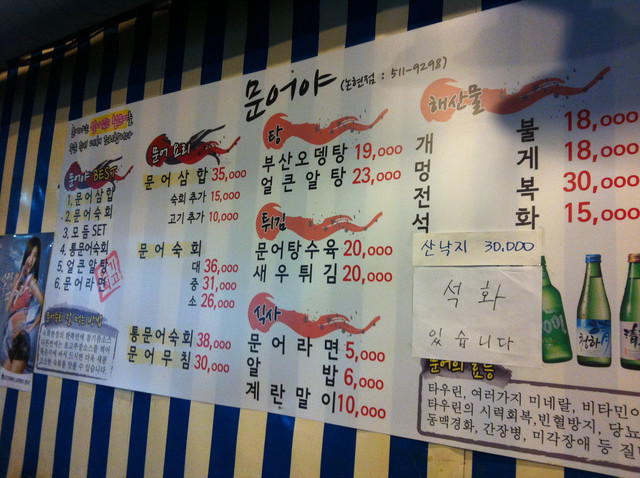 문어야 (논현점 : 511-9298)
문어야 BEST
1. 문어삼합
2. 문어숙회
3. 모듬 SET
4. 통문어숙회
5. 얼큰알탕
6. 문어라면
문어 요리
문어삼합 35,000
숙회 추가 15,000
고기 추가 10,000
문어숙회
대 36,000
중 31,000
소 26,000
통문어숙회 38,000
문어무침 30,000
탕
부산오뎅탕 19,000
얼큰알탕 23,000
튀김
문어탕수육 20,000
새우튀김 20,000
식사
문어라면 5,000
알밥 6,000
계란말이 10,000
해산물
개불 18,000
멍게 18,000
전복 30,000
석화 15,000
산낙지 30,000
석화
있습니다
문어의 효능
타우린, 여러가지 미네랄, 비타민
타우린의 시력회복, 빈혈방지, 당뇨
동맥경화, 간장병, 미각장애 등 질